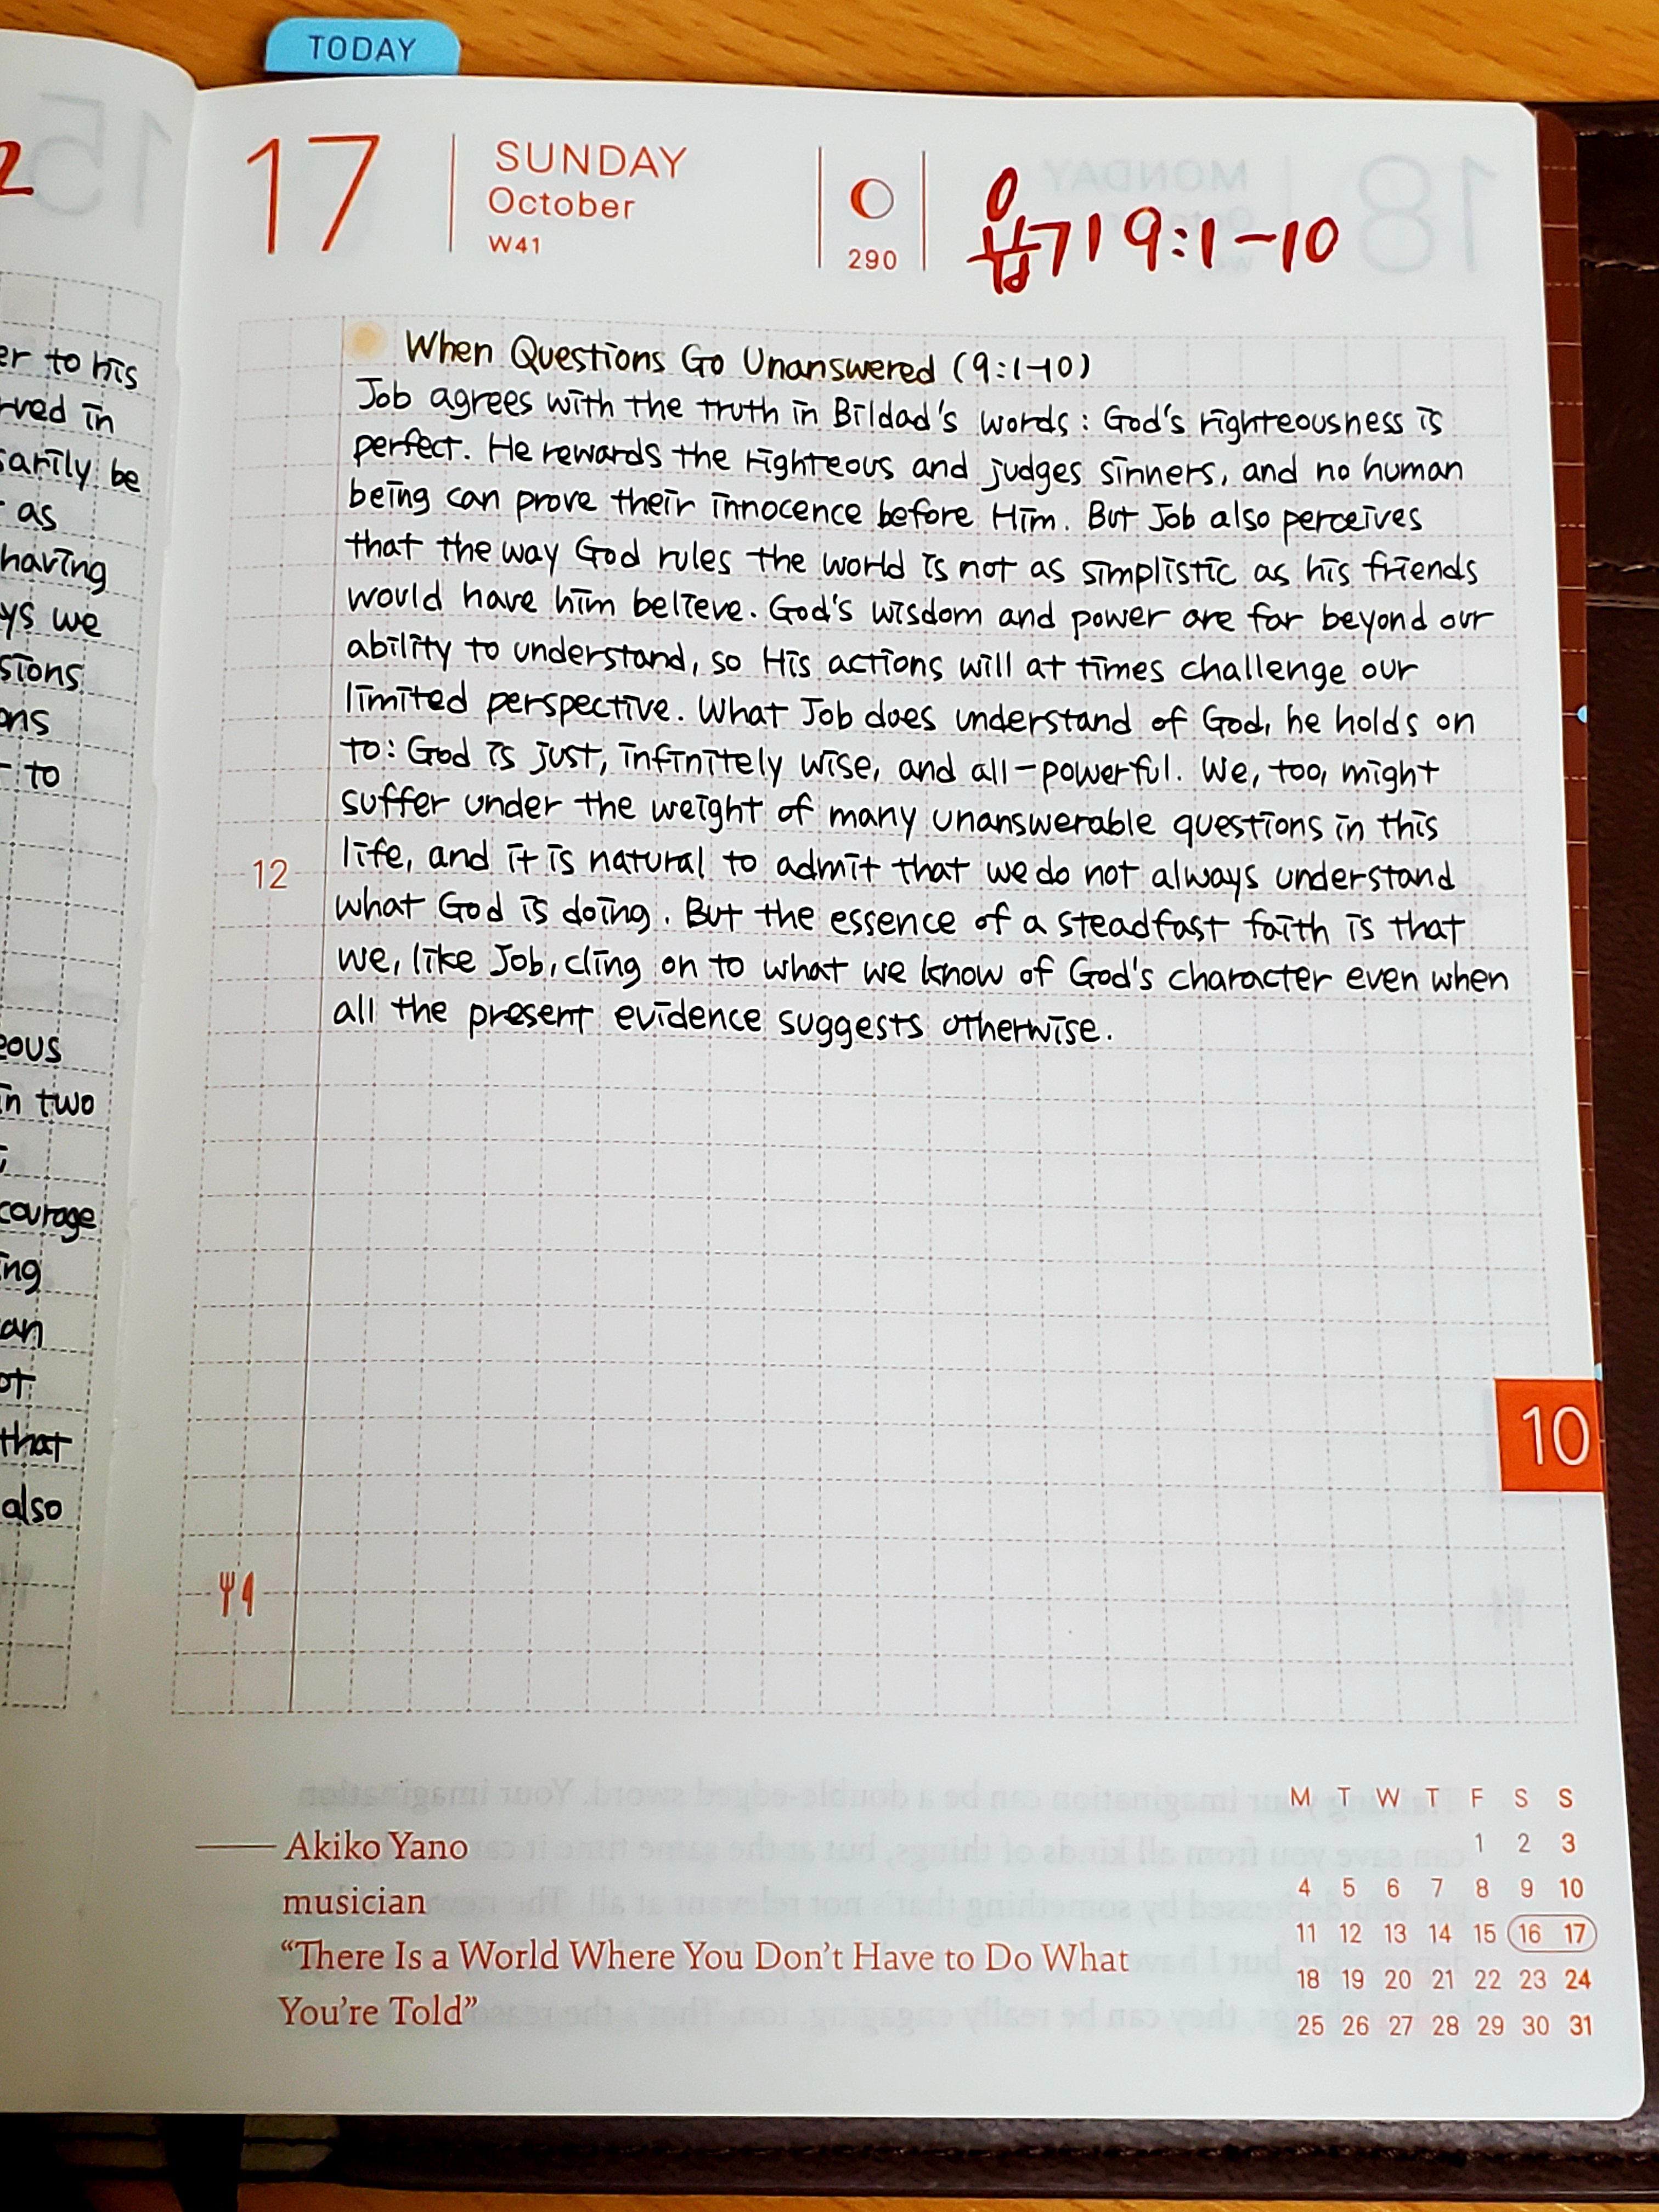 TODAY
17
SUNDAY
October
W41
290
욥기 9:1-10
When Questions Go Unanswered (9:1-10)
Job agrees with the truth in Bildad's words: God's righteousness is
perfect. He rewards the righteous and judges sinners, and no human
being can prove their innocence before Him. But Job also perceives
that the way God rules the world is not as simplistic as his friends
would have him believe. God's wisdom and power are far beyond our
ability to understand, so His actions will at times challenge our
limited perspective. What Job does understand of God, he holds on
to: God is just, infinitely wise, and all-powerful. We, too, might
suffer under the weight of many unanswerable questions in this
12
life, and it is natural to admit that we do not always understand
what God is doing. But the essence of a steadfast faith is that
we, like Job, cling on to what we know of God's character even when
all the present evidence suggests otherwise.
10
Akiko Yano
musician
“There Is a World Where You Don't Have to Do What
You're Told”
M T W T F S S
1 2 3
4 5 6 7 8 9 10
11 12 13 14 15 16 17
18 19 20 21 22 23 24
25 26 27 28 29 30 31
2
15
er to his
rved in
sarily be
as
having
ys we
sions
ons
to
eous
in two
courage
ing
an
ot
that
also